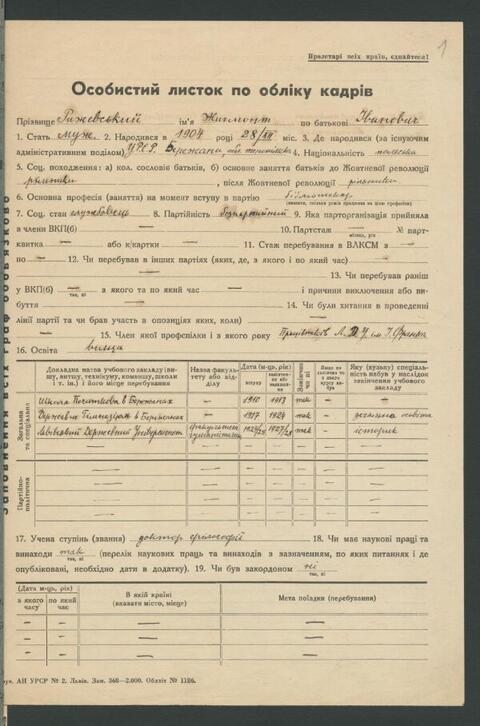 1
Пролетарі всіх країн, єднайтеся!
Особистий листок по обліку кадрів
Прізвище Рижевський ім'я Жигмонт по батькові Іванович
1. Стать муж. 2. Народився в 1904 році 28/ міс. 3. Де народився (за існуючим
адміністративним поділом) УРСР, Бережани, обл. 4. Національність польська
5. Соц. походження: а) кол. сословіє батьків, б) основне заняття батьків до Жовтневої революції
рільники, після Жовтневої революції рільники
6. Основна професія (заняття) на момент вступу в партію
(вказати, скільки років працював за цією професією)
7. Соц. стан службовець 8. Партійність безпартійний 9. Яка парторганізація прийняла
в члени ВКП(б) — 10. Партстаж — № парт-
місяць, рік
квитка — або к/картки — 11. Стаж перебування в ВЛКСМ з —
по — 12. Чи перебував в інших партіях (яких, де, з якого і по який час)
— 13. Чи перебував раніш
у ВКП(б) — з якого та по який час — і причини виключення або ви-
так, ні
буття — 14. Чи були хитання в проведенні
лінії партії та чи брав участь в опозиціях яких, коли) —
— 15. Член якої профспілки і з якого року Л.Д.У. ім. І. Франка
16. Освіта вища
Заповнення всіх граф обов'язково
Загальна та спеціальна
Докладна назва учбового закладу (вищу, внтуз, технікум, комвищу, школи і т. ін.) і його місце перебування
Назва факультету або відділу
Дата (м-ць, рік)
вступу
Закінчив чи ні
Яку (вузьку) спеціальність набув у наслідок закінчення учбового закладу
Школа в Бережанах — 1910 1913 так —
Державна Гімназія в Бережанах — 1917 1924 так —
Львівський Державний Університет так — історик
Партійно-політична
17. Учена ступінь (звання) доктор філософії 18. Чи має наукові праці та
винаходи так (перелік наукових праць та винаходів з зазначенням, по яких питаннях і де
так, ні
опубліковані, необхідно дати в додатку). 19. Чи був закордоном ні
так, ні
(Дата м-ць, рік)
з якого часу
по який час
В якій країні
(вказати місто, місце)
Мета поїздки (перебування)
— — — —
— — — —
— — — —
АН УРСР № 2. Львів. Зам. 368—2.000. Обліт № 1186.